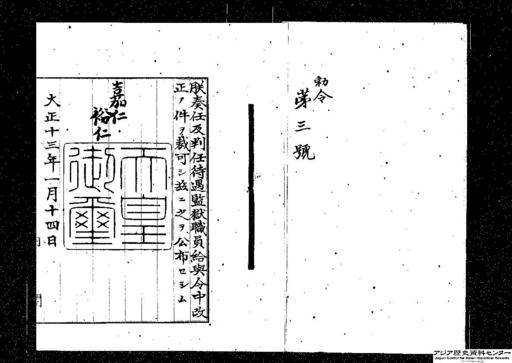 勅令
第三號
朕奏任及判任待遇監獄職員給與令中改
正ノ件ヲ裁可シ茲ニ之ヲ公布セシム
嘉仁
裕仁
天皇
御璽
大正十三年一月十四日
アジア歴史資料センター
Japan Center for Asian Historical Records